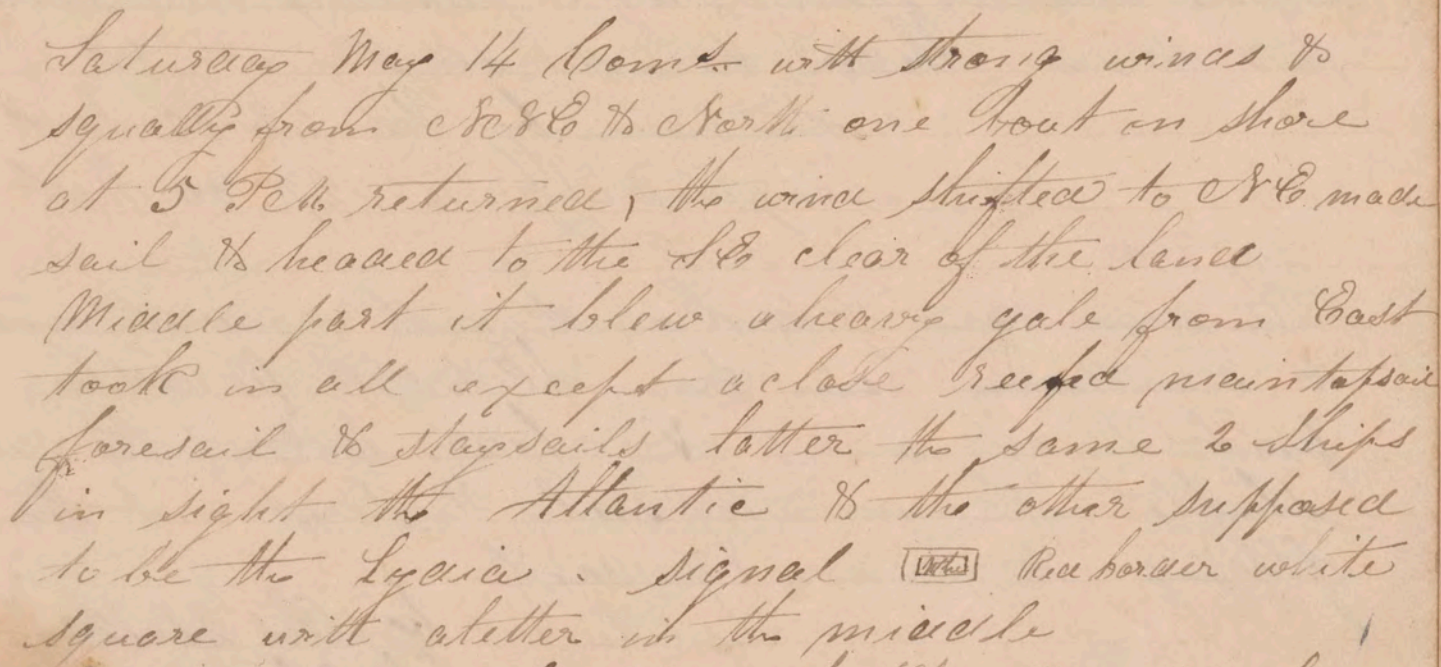 Saturday May 14 Coms with strong winds &
squally from NNE & North one boat in shore
at 5 PM returned, the wind shifted to NE made
sail & headed to the SE clear of the land
Middle part it blew a heavy gale from East
took in all except a close reefd maintopsail
foresail & staysails latter the same 2 Ships
in sight the Atlantic & the other supposed
to be the Lydia . signal Red border white
square with a letter in the middle